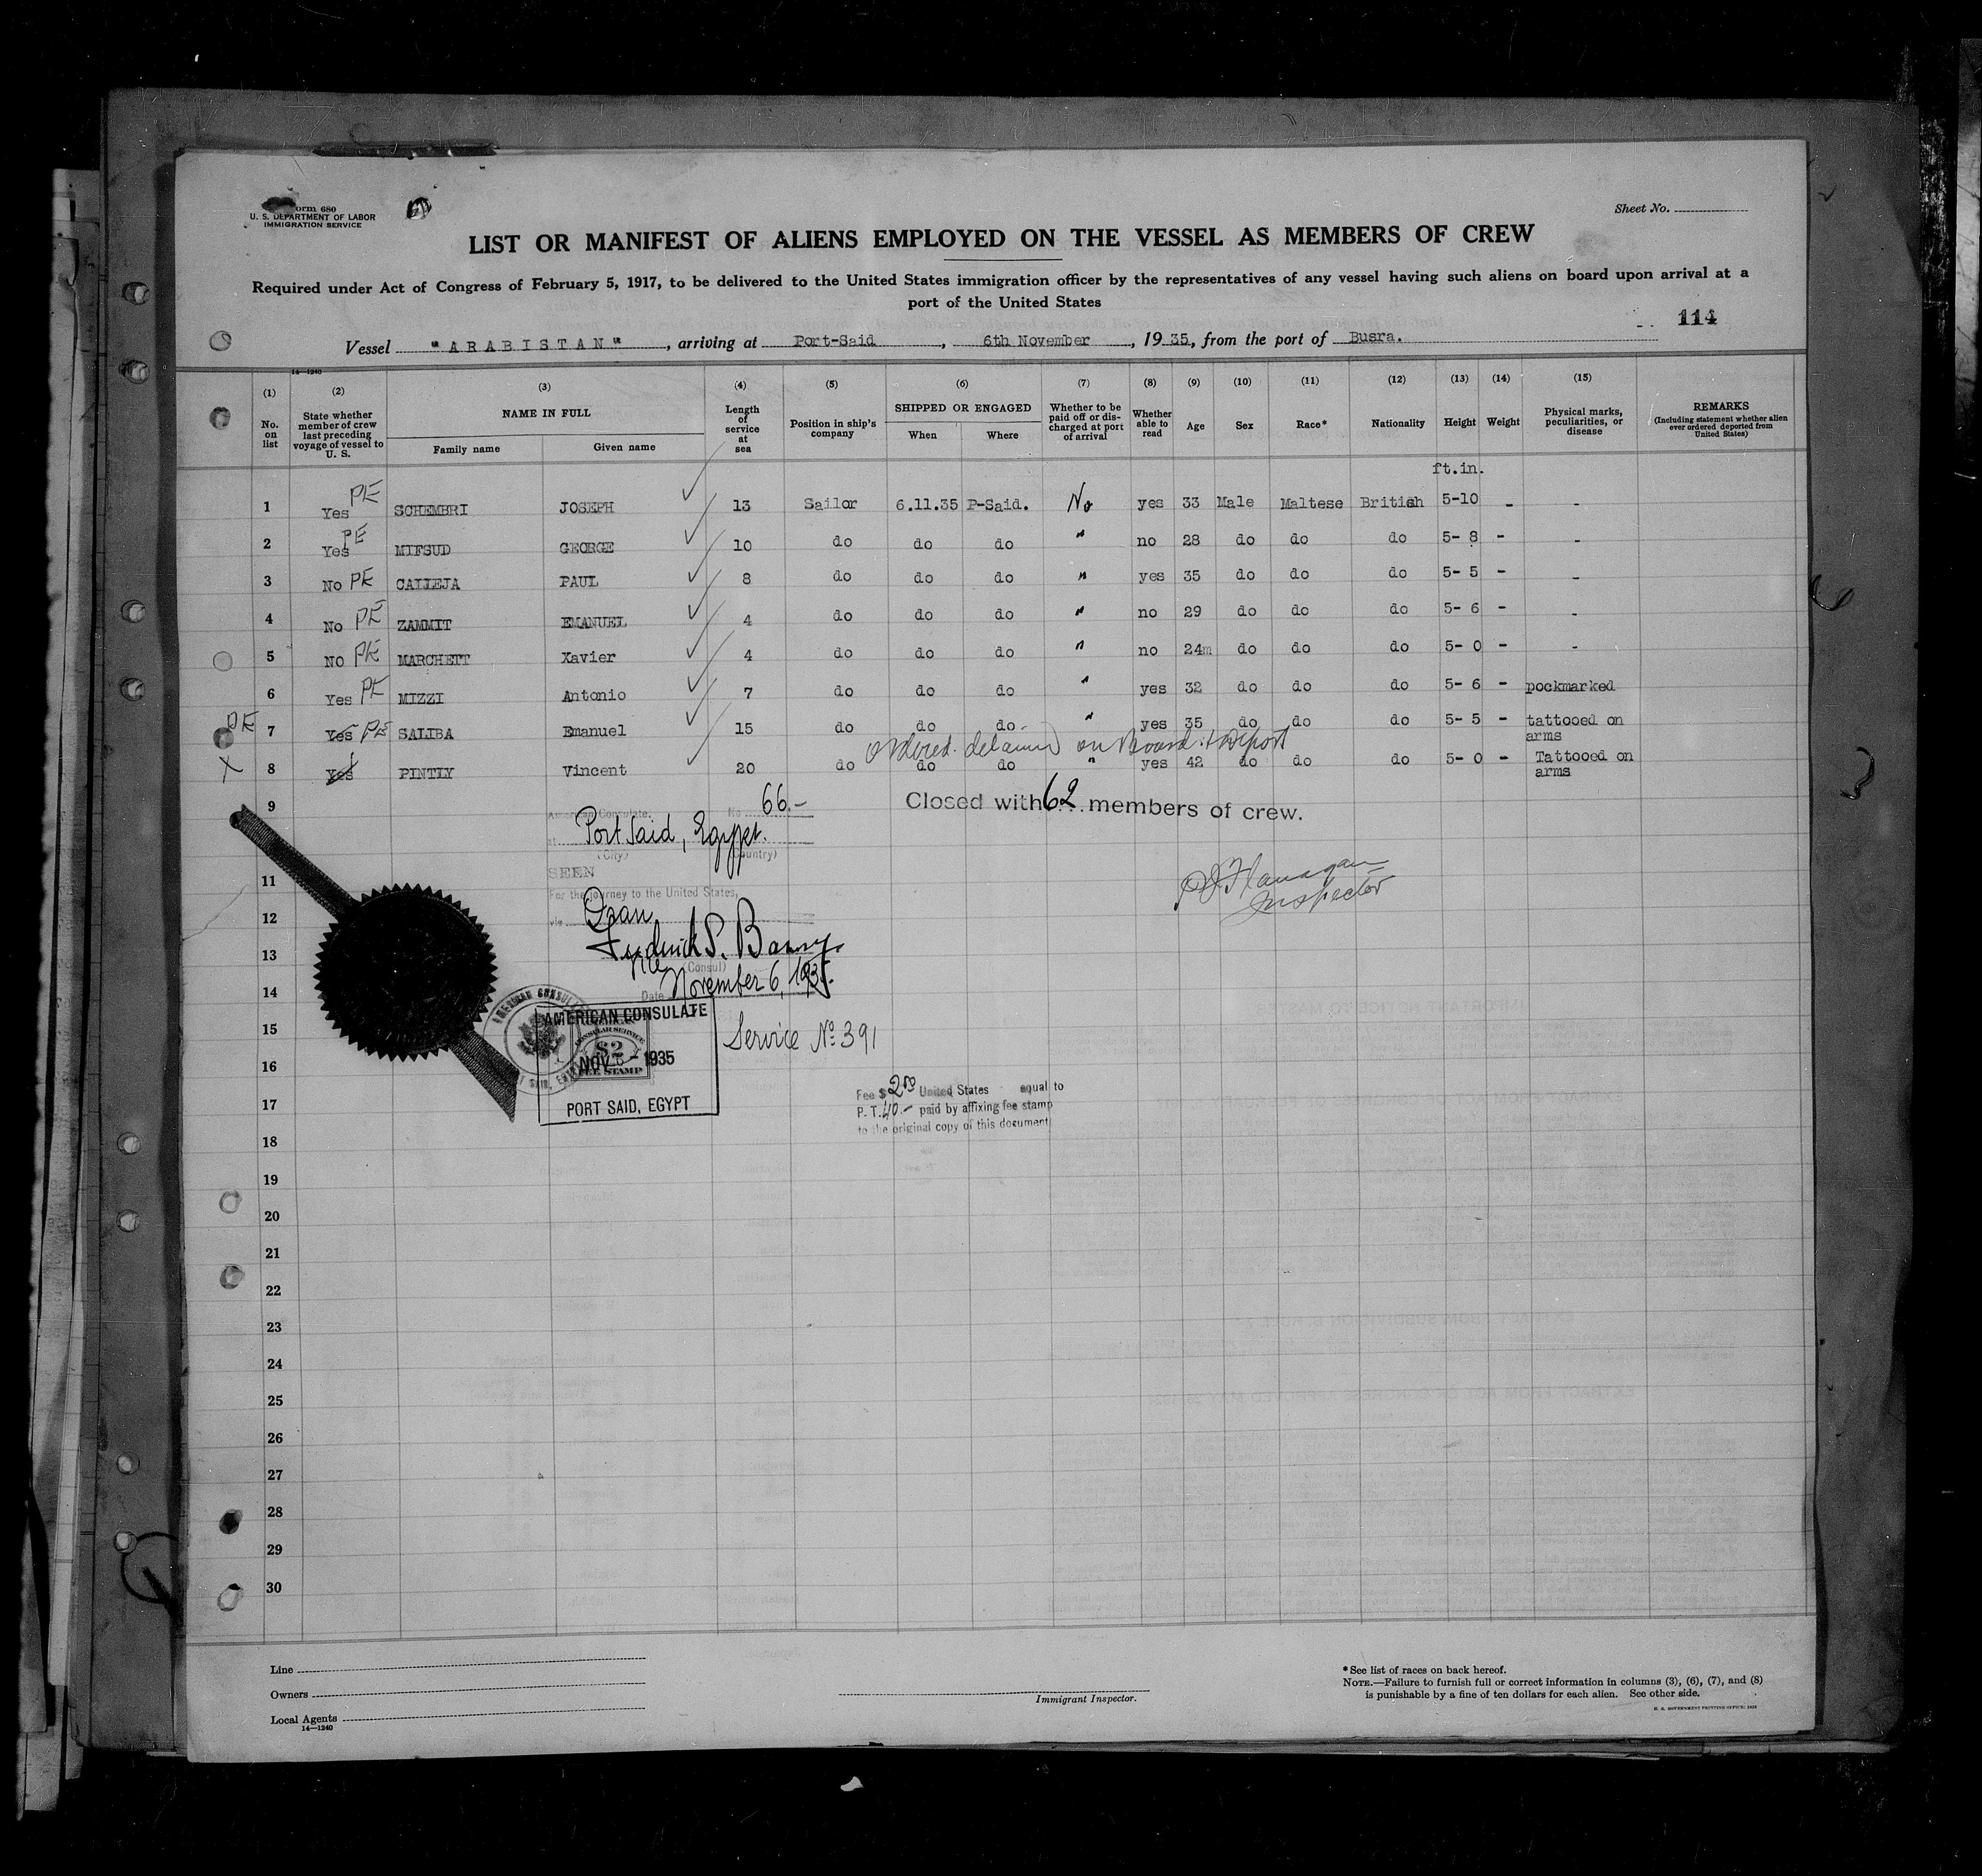 Form 680
U. S. DEPARTMENT OF LABOR
IMMIGRATION SERVICE
Sheet No.
LIST OR MANIFEST OF ALIENS EMPLOYED ON THE VESSEL AS MEMBERS OF CREW
Required under Act of Congress of February 5, 1917, to be delivered to the United States immigration officer by the representatives of any vessel having such aliens on board upon arrival at a
port of the United States
114
Vessel "ARABISTAN", arriving at Port-Said, 6th November, 1935, from the port of Busra.
14—1240
(1) (2) (3) (4) (5) (6) (7) (8) (9) (10) (11) (12) (13) (14) (15)
No. on list
State whether member of crew last preceding voyage of vessel to U. S.
NAME IN FULL
Family name
Given name
Length of service at sea
Position in ship's company
SHIPPED OR ENGAGED
When
Where
Whether to be paid off or discharged at port of arrival
Whether able to read
Age
Sex
Race*
Nationality
Height
Weight
Physical marks, peculiarities, or disease
REMARKS
(Including statement whether alien ever ordered deported from United States)
ft.in.
1 Yes PE SCHEMBRI JOSEPH 13 Sailor 6.11.35 P-Said. No yes 33 Male Maltese British 5-10 - -
2 Yes PE MIFSUD GEORGE 10 do do do " no 28 do do do 5- 8 - -
3 No PE CALLEJA PAUL 8 do do do " yes 35 do do do 5- 5 - -
4 No PE ZAMMIT EMANUEL 4 do do do " no 29 do do do 5- 6 - -
5 No PE MARCHETT Xavier 4 do do do " no 24m do do do 5- 0 - -
6 Yes PE MIZZI Antonio 7 do do do " yes 32 do do do 5- 6 - pockmarked
PE 7 Yes PE SALIBA Emanuel 15 do do do " yes 35 do do do 5- 5 - tattooed on arms
ordered detained on Board & Deport
X 8 Yes PINTLY Vincent 20 do do do " yes 42 do do do 5- 0 - Tattooed on arms
9
American Consulate. No 66.-
Closed with 62 members of crew.
at Port Said, Egypt.
(City) (Country)
SEEN
For the journey to the United States,
Flanagan
Inspector
11
12
via Oran
Frederick S. Barny.
13
Vice (Consul)
14
Date November 6, 1935.
15
AMERICAN CONSULATE
Service No. 391
CONSULAR SERVICE
$2
FEE STAMP
NOV 6 - 1935
PORT SAID, EGYPT
16
Fee $ 2.00 United States equal to
17
P. T. 40.- paid by affixing fee stamp
to the original copy of this document
18
19
20
21
22
23
24
25
26
27
28
29
30
Line
Owners
Local Agents
14—1240
Immigrant Inspector.
*See list of races on back hereof.
NOTE.—Failure to furnish full or correct information in columns (3), (6), (7), and (8)
is punishable by a fine of ten dollars for each alien. See other side.
U. S. GOVERNMENT PRINTING OFFICE